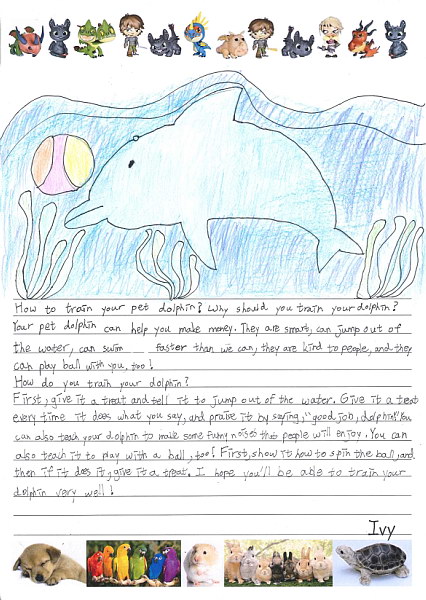 How to train your pet dolphin? Why should you train your dolphin?
Your pet dolphin can help you make money. They are smart, can jump out of
the water, can swim faster than we can, they are kind to people, and they
can play ball with you, too!
How do you train your dolphin?
First, give it a treat and tell it to jump out of the water. Give it a treat
every time it does what you say, and praise it by saying, "good job, dolphin!" You
can also teach your dolphin to make some funny noises that people will enjoy. You can
also teach it to play with a ball, too! First, show it how to spin the ball, and
then if it does it, give it a treat. I hope you'll be able to train your
dolphin very well!
Ivy